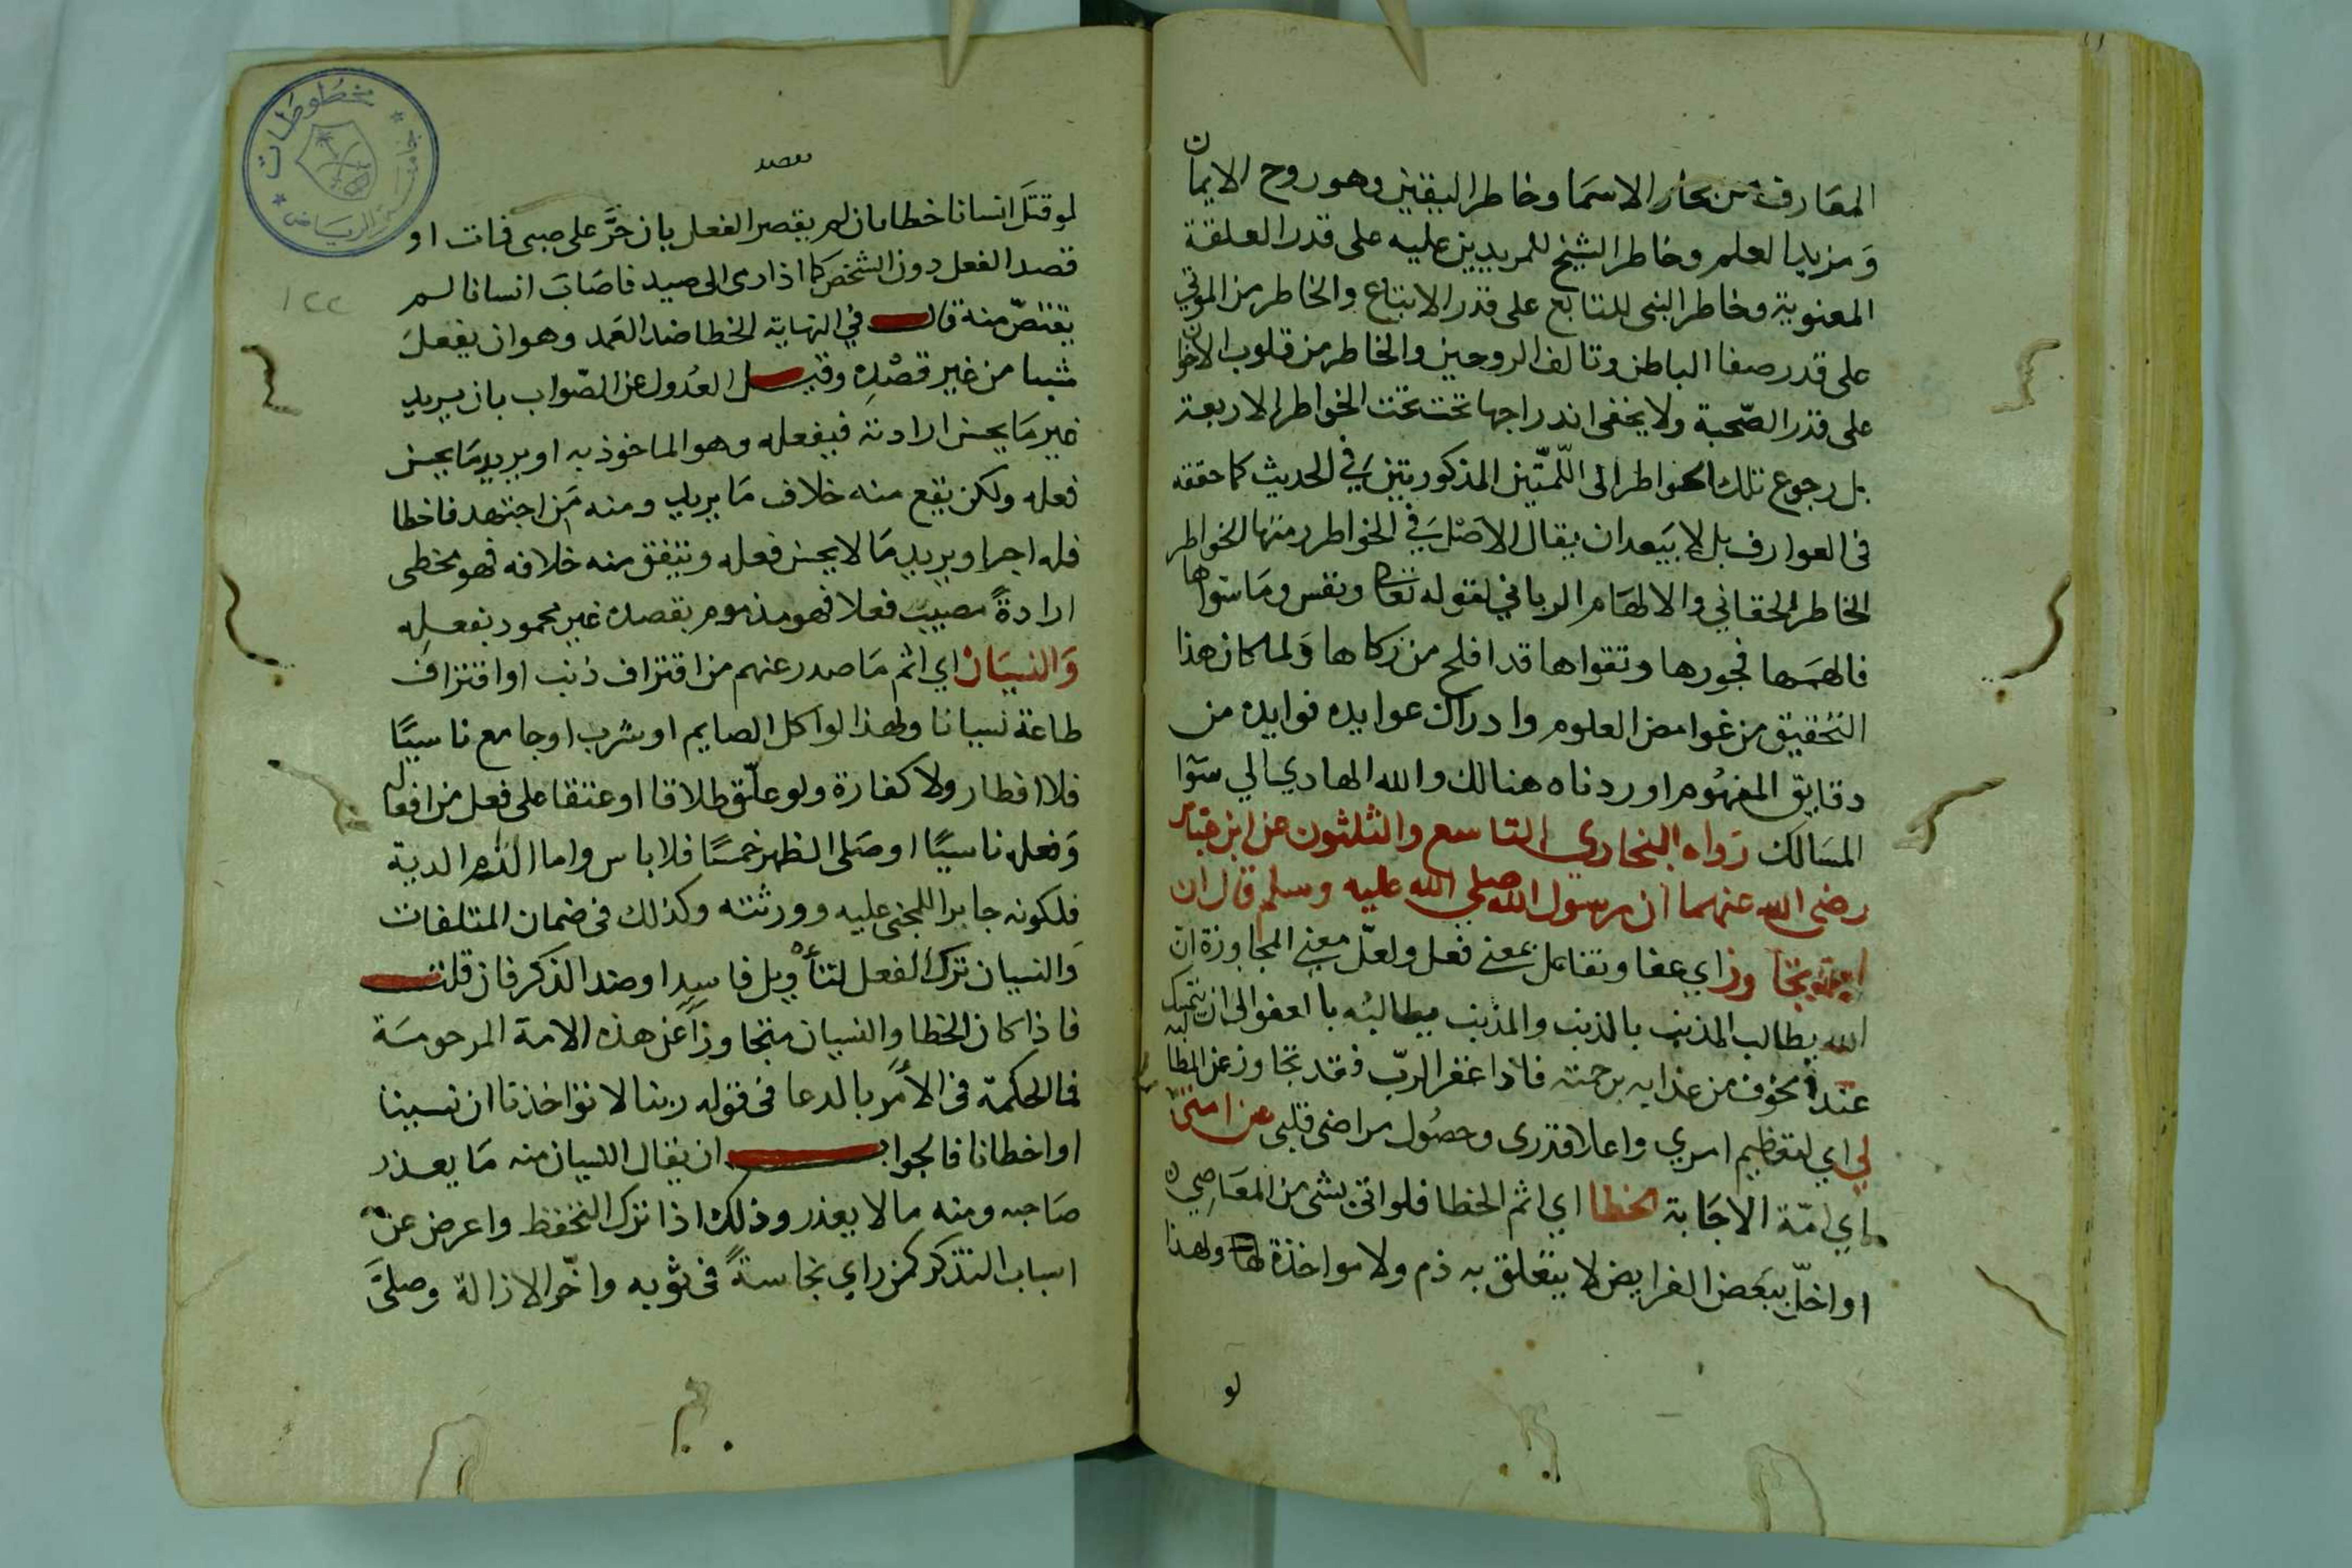 المعارف من بحار الاسما وخاطر اليقين وهو روح الايمان
ومزيد العلم وخاطر الشيخ للمريدين عليه على قدر العلقة
المعنوية وخاطر النبى للمتابع على قدر الاتباع والخاطر من
على قدر صفا الباطن وتالف الروحين والخاطر من قلوب الاخوان
على قدر الصّحبة ولا يخفى اندراجها تحت تحت الخواطر الاربعة
بل رجوع تلك الخواطر الى اللّمتّين المذكورتين في الحديث كما حققه
فى العوارف بل لا يبعد ان يقال الاصل في الخواطر ومنها الخواطر
الخاطر الحقاني والالهام الرباني لقوله تعالى ونفس وما سواها
فالهمها فجورها وتقواها قد افلح من زكاها ولما كان هذا
التحقيق من غوامض العلوم وادراك عوايده فوايده من
دقايق المفهوم اوردناه هنالك والله الهادي الي سوا
المسالك رواه البخاري التاسع والثلثون عن ابن عباس
رضى الله عنهما ان رسول الله صلي الله عليه وسلم قال ان
الله تجاوز اي عفا وتفاعل بمعنى فعل ولعلّ معنى المجاوزة ان
الله يطالب المذنب بالذنب والمذنب يطالبه بالعفو الى ان يتمسك
عند الخوف من عذابه برحمته فاذا غفر الربّ فقد تجاوز عن المطالبة
لي اي لتعظيم امري واعلا قدرى وحصول مراضى قلبى عن امتى
اي امّة الاجابة الخطا اي اثم الخطا فلو اتى بشى من المعاصي
او اخلّ ببعض الفرايض لا يتعلق به ذم ولا مواخذة لها ولهذا
لو
مخطوطات
جامعة الرياض
١٢٢
يقصد
لو قتل انسانا خطا بان لم يقصر الفعل بان خرّ على صبى فمات او
قصد الفعل دون الشخص كما اذا رمى الى صيد فاصاب انسانا لم
يقتصّ منه قال في النهاية الخطا ضد العمد وهو ان يفعل
شيئا من غير قصده وقيل العدول عن الصّواب بان يريد
غير ما يحسن ارادته فيفعله وهو الماخوذ به او يريد ما يحسن
فعله ولكن يقع منه خلاف ما يريد ومنه من اجتهد فاخطا
فله اجر او يريد ما لا يحسن فعله ويتفق منه خلافه فهو مخطى
ارادةً مصيب فعلا فهو مذموم بقصده غير محمود بفعله
والنسيان اي اثم ما صدر عنهم من اقتراف ذنب او اقتراف
طاعة نسيانا ولهذا لو اكل الصايم او شرب او جامع ناسيًا
فلا افطار ولا كفارة ولو علّق طلاقا او عتقا على فعل من افعاله
وفعله ناسيًا او صلى الظهر خمسًا فلا باس واما الذم الدية
فلكونه جابرا للمجنى عليه وورثته وكذلك فى ضمان المتلفات
والنسيان ترك الفعل لتأويل فاسد او ضد الذكر فان قلت
فاذا كان الخطا والنسيان متجاوزاً عن هذه الامة المرحومة
فما الحكمة فى الامر بالدعا فى قوله ربنا لا تؤاخذنا ان نسينا
او اخطانا فالجواب ان يقال النسيان منه ما يعذر
صاحبه ومنه ما لا يعذر وذلك اذا ترك التحفظ واعرض عن
اسباب التذكر كمن راي نجاسةً فى ثوبه واخّر الازالة وصلىّ